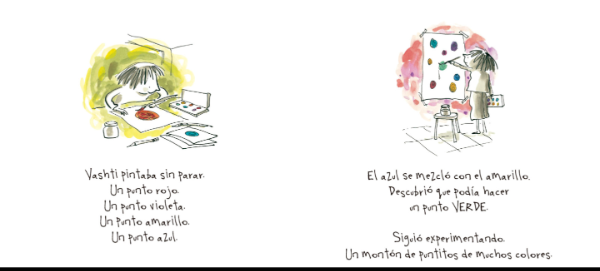 Vashti pintaba sin parar.
Un punto rojo.
Un punto violeta.
Un punto amarillo.
Un punto azul.
El azul se mezcló con el amarillo.
Descubrió que podía hacer
un punto VERDE.
Siguió experimentando.
Un montón de puntitos de muchos colores.